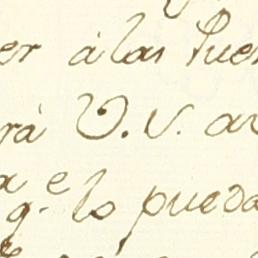 er á las Puer
rá V. V. av
a q.e lo pueda